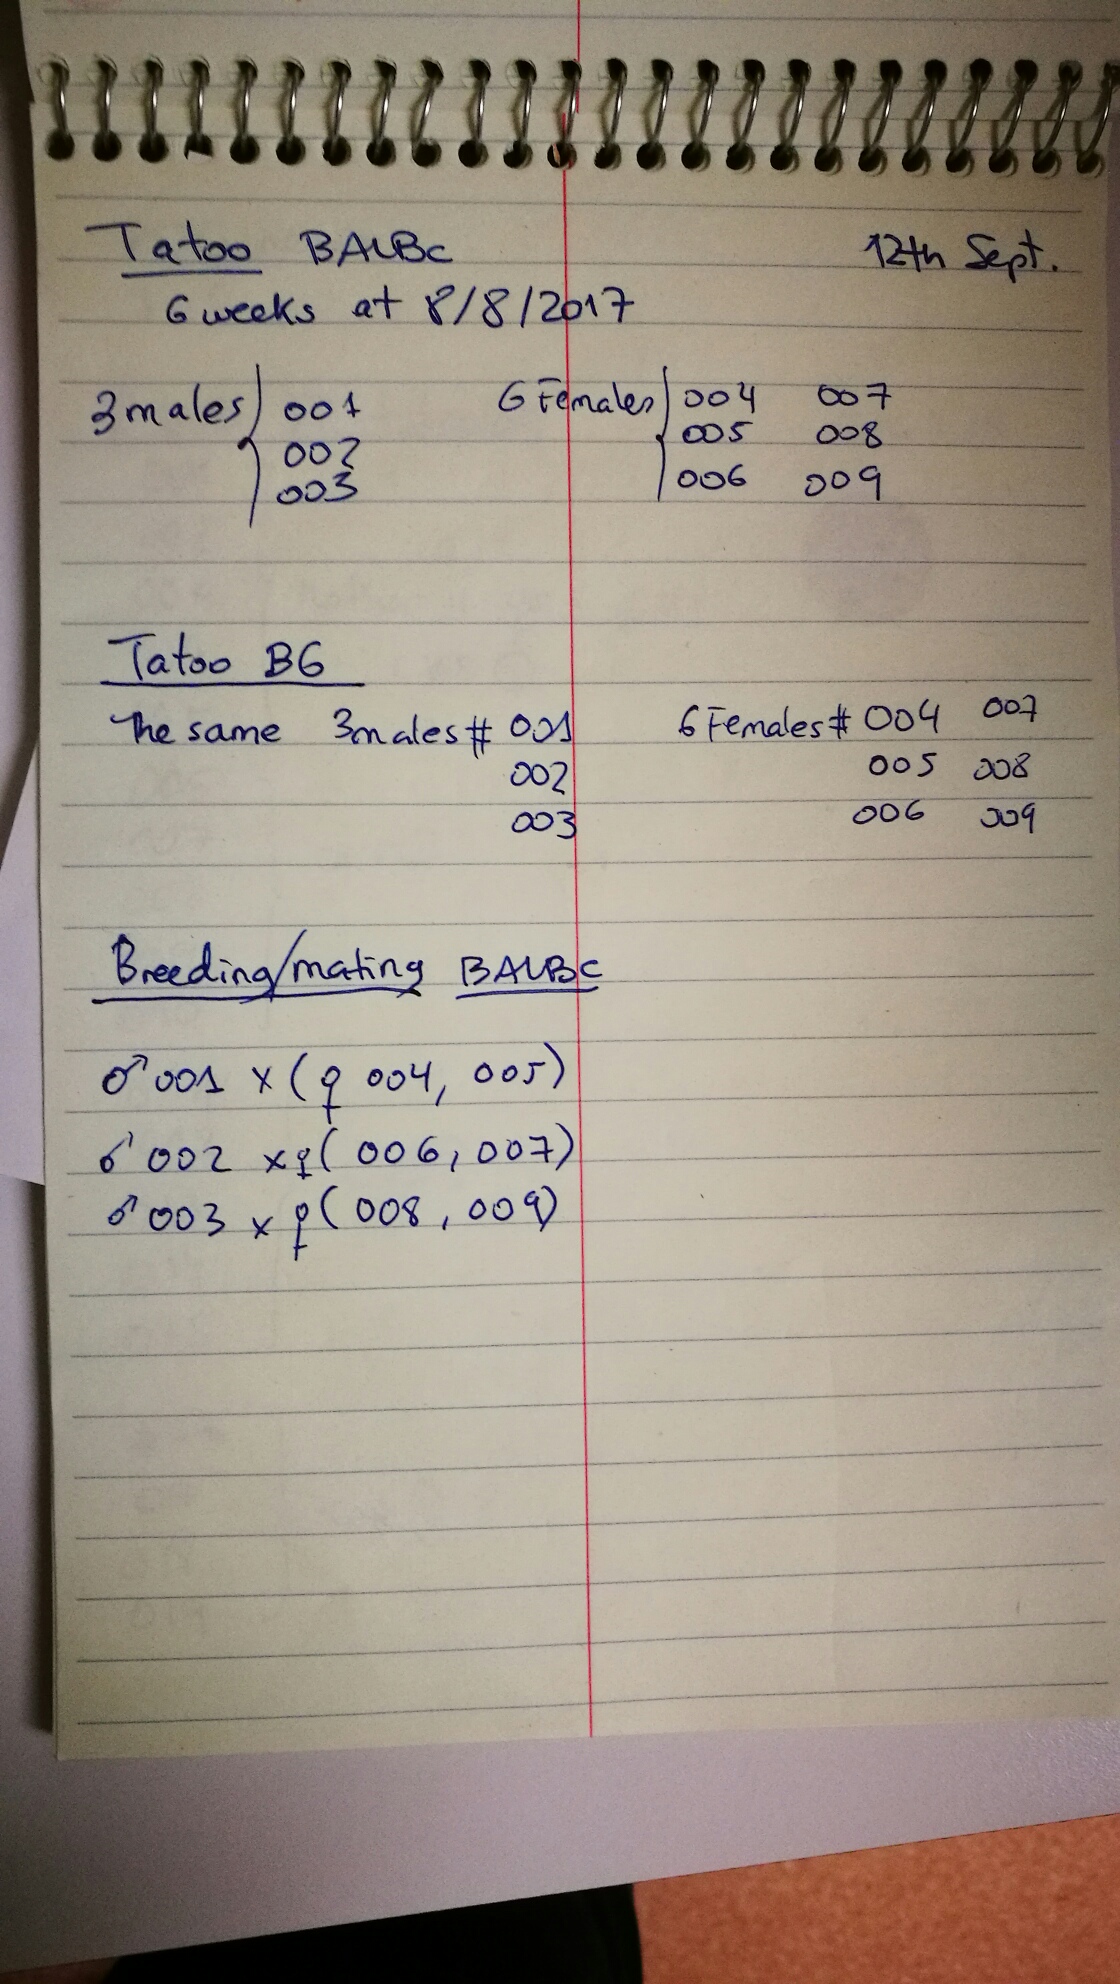 Tatoo BALBc 12th Sept.
6 weeks at 8/8/2017
3 males 001 6 Females 004 007
002 005 008
003 006 009
Tatoo B6
The same 3 males # 001 6 Females # 004 007
002 005 008
003 006 009
Breeding/mating BALBc
♂ 001 x (♀ 004, 005)
♂ 002 x ♀ (006, 007)
♂ 003 x ♀ (008, 009)